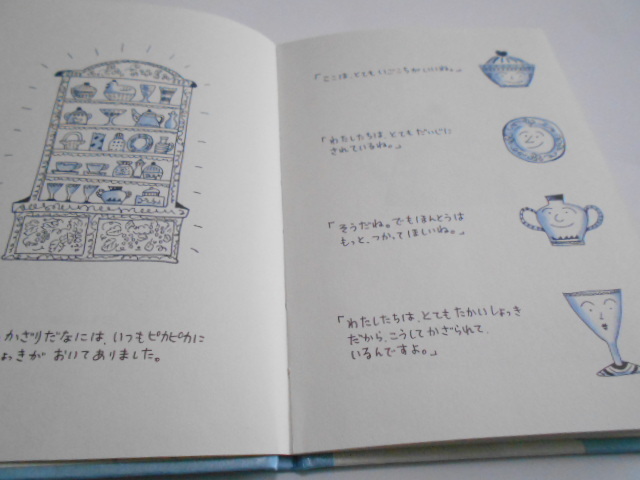 かざりだなには、いつもピカピカに
ょっきが おいてありました。
「ここは、とても いごこちがいいね。」
「わたしたちは、とても だいじに
されているね。」
「そうだね。でも ほんとうは
もっと、つかってほしいね。」
「わたしたちは、とても たかい しょっき
だから、こうして かざられて
いるんですよ。」